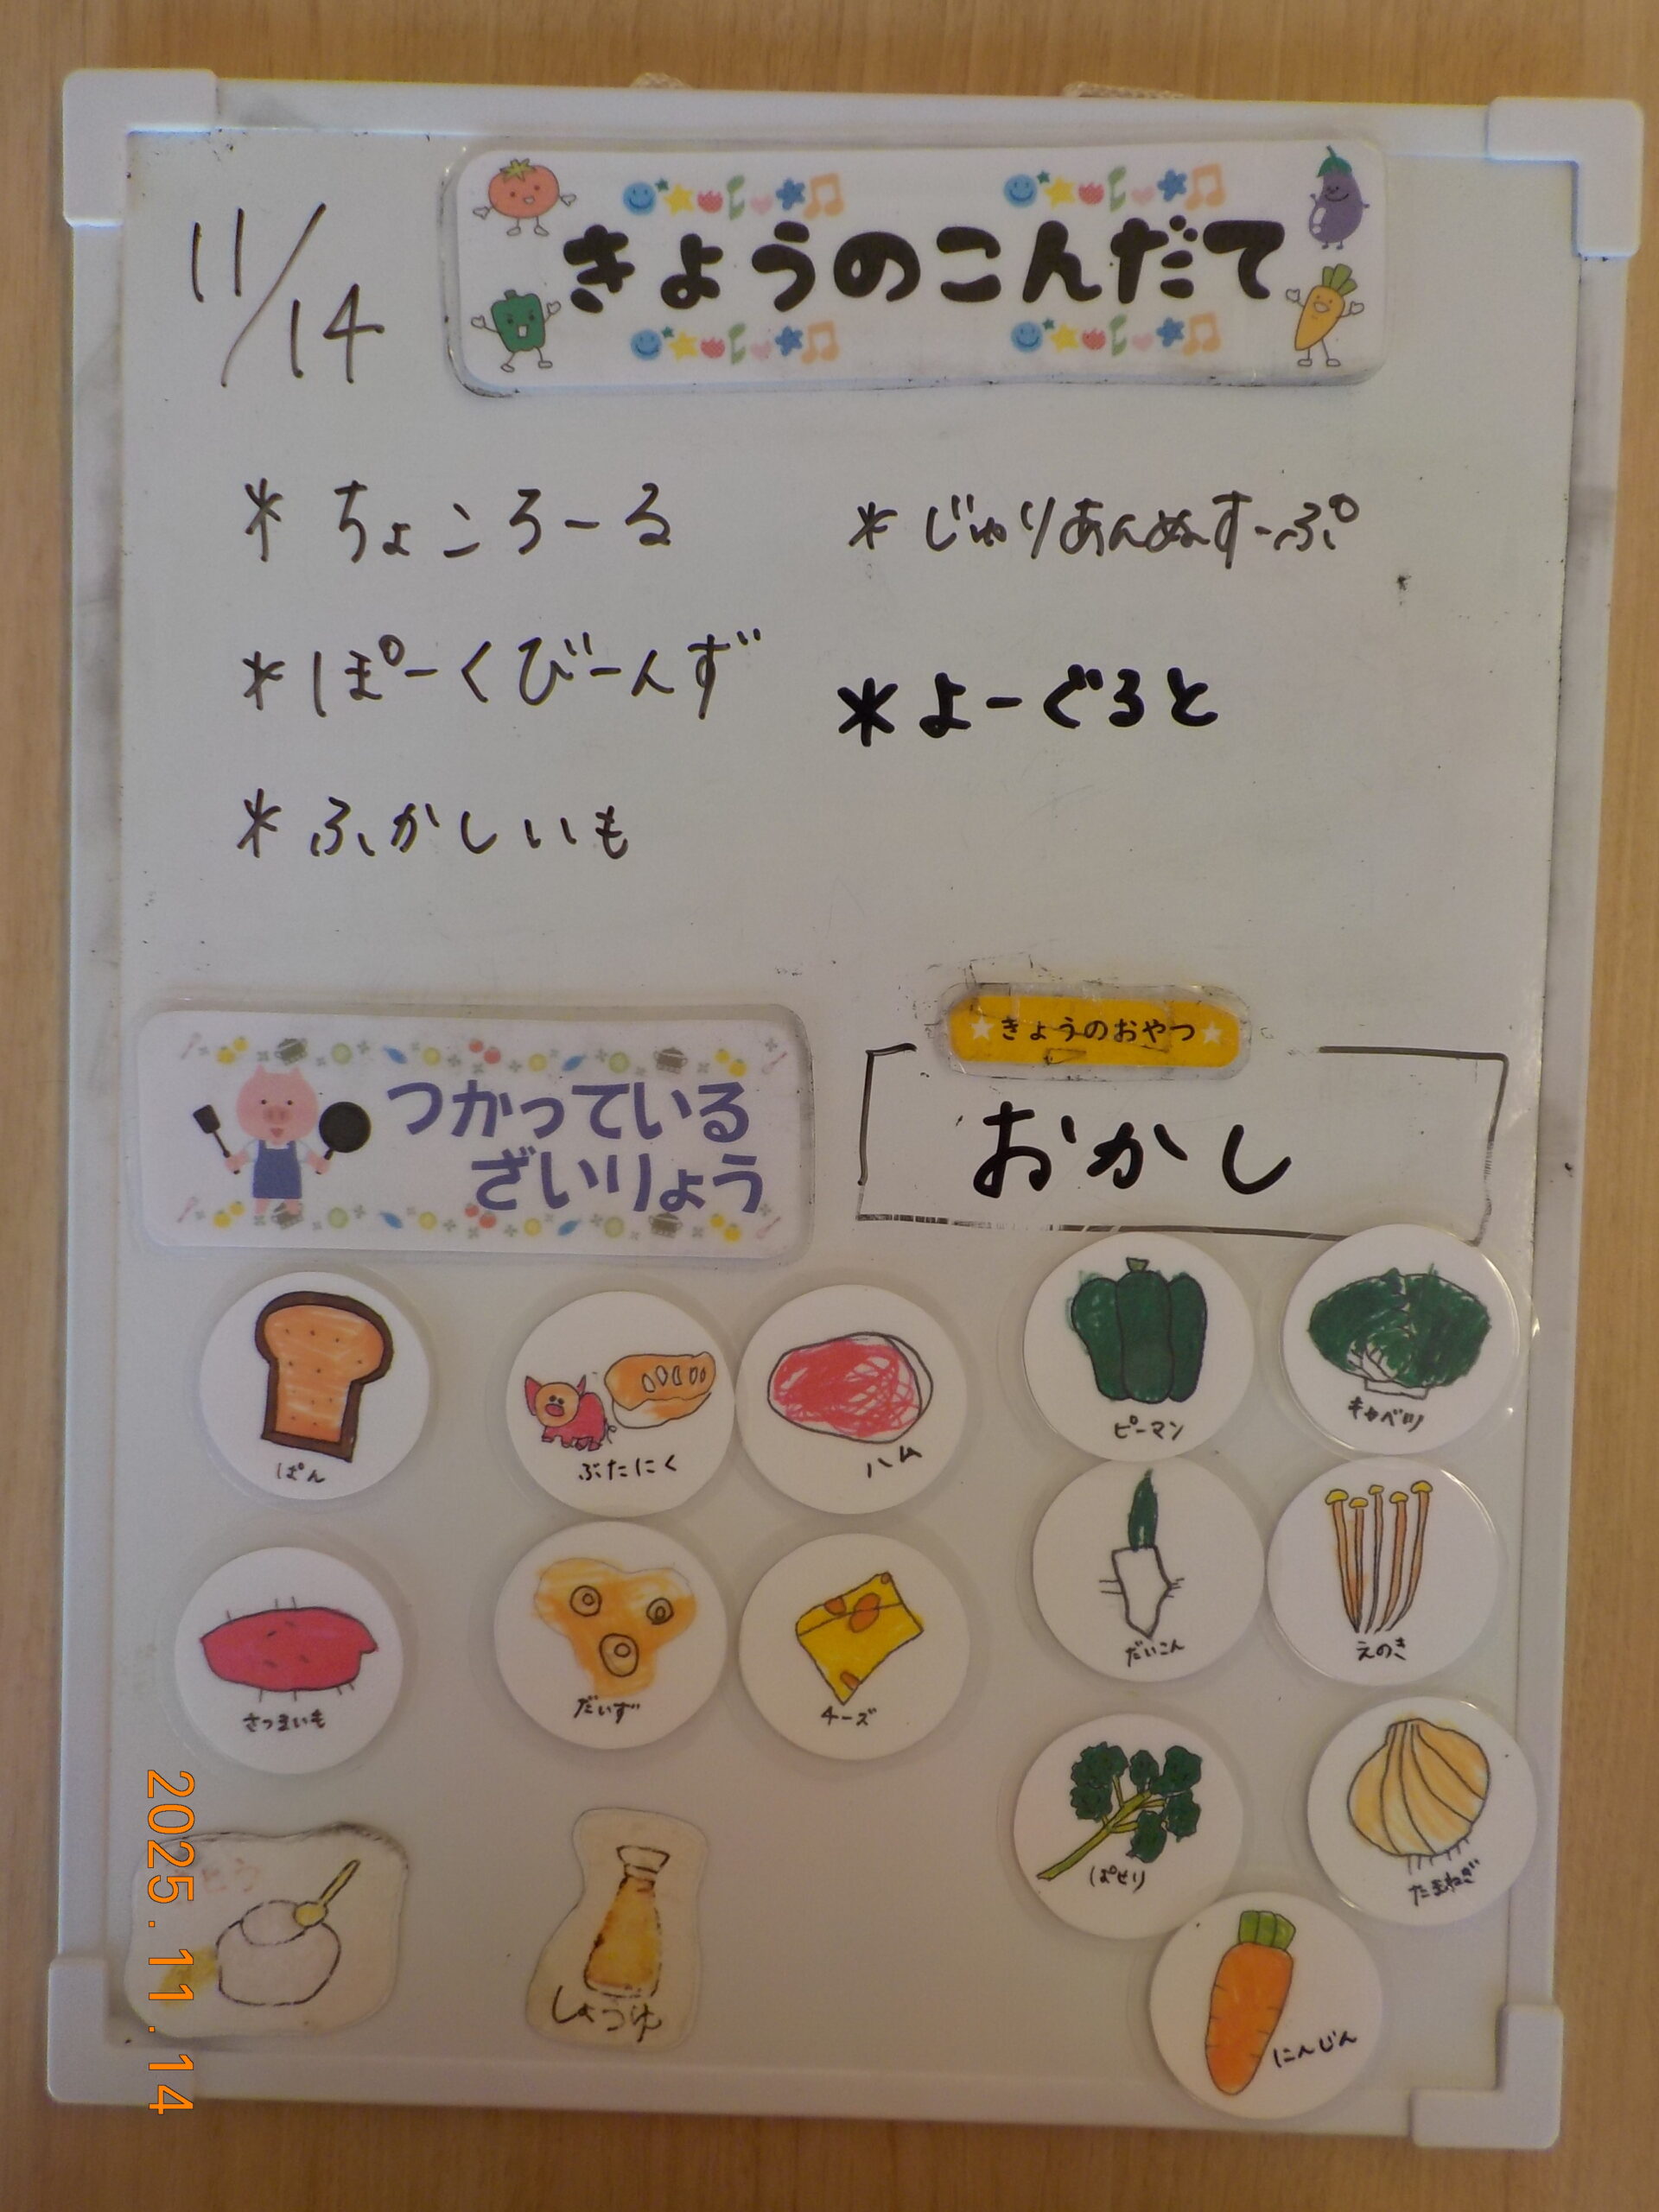 11/14
きょうのこんだて
* ちょころーる
* ぽーくびーんず
* ふかしいも
* じゅりあんぬすーぷ
* よーぐると
きょうのおやつ
おかし
つかっている
ざいりょう
ぱん
ぶたにく
ハム
ピーマン
キャベツ
さつまいも
だいず
チーズ
だいこん
えのき
ぱせり
たまねぎ
しょうゆ
にんじん
2025.11.14